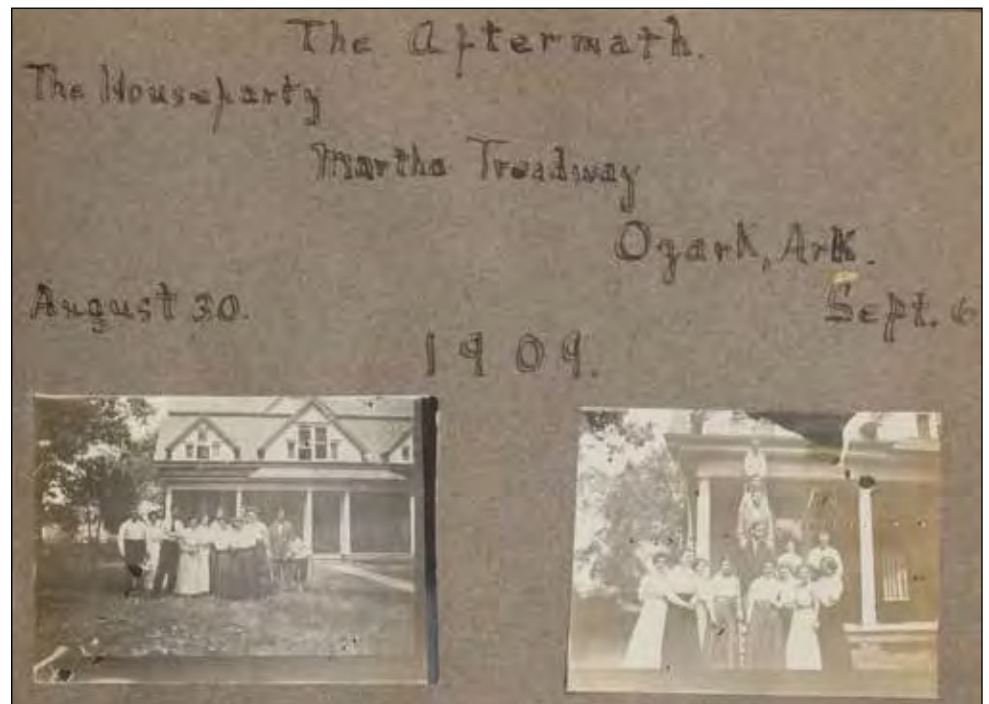 The Aftermath.
The Houseparty
Martha Treadway
Ozark, Ark.
August 30. Sept. 6
1909.